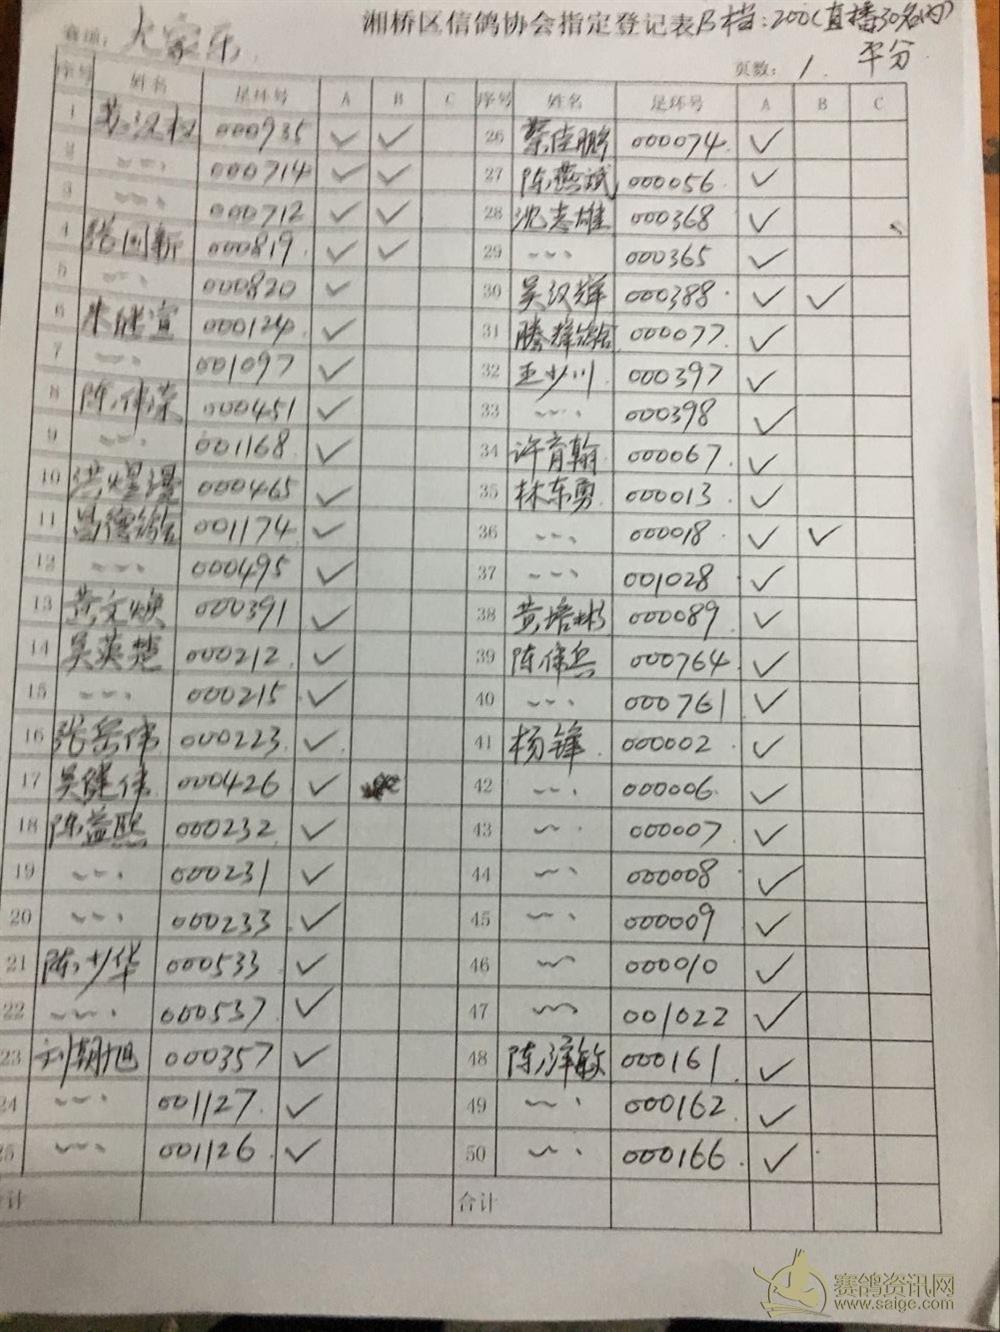 湘桥区信鸽协会指定登记表 B档:200(直播30名内)
赛项: 大家乐 平分
页数: 1
序号 姓名 足环号 A B C 序号 姓名 足环号 A B C
1 000935 ✓ ✓ 26 蔡佳鹏 000074 ✓
2 000714 ✓ ✓ 27 陈燕斌 000056 ✓
3 000712 ✓ ✓ 28 沈志雄 000368 ✓
4 张国新 000819 ✓ ✓ 29 000365 ✓
5 000820 ✓ 30 吴汉辉 000388 ✓ ✓
6 朱继宣 000124 ✓ 31 腾辉鸽舍 000077 ✓
7 001097 ✓ 32 王少川 000397 ✓
8 陈伟荣 000451 ✓ 33 000398 ✓
9 001168 ✓ 34 许育翰 000067 ✓
10 000465 ✓ 35 林东勇 000013 ✓
11 昌德鸽舍 001174 ✓ 36 000018 ✓ ✓
12 000495 ✓ 37 001028 ✓
13 黄文焕 000391 ✓ 38 黄培彬 000089 ✓
14 吴英楚 000212 ✓ 39 陈伟兵 000764 ✓
15 000215 ✓ 40 000761 ✓
16 张岳伟 000223 ✓ 41 杨锋 000002 ✓
17 吴健伟 000426 ✓ 42 000006 ✓
18 陈益熙 000232 ✓ 43 000007 ✓
19 000231 ✓ 44 000008 ✓
20 000233 ✓ 45 000009 ✓
21 陈少华 000533 ✓ 46 000010 ✓
22 000537 ✓ 47 001022 ✓
23 刘朝旭 000357 ✓ 48 陈泽敏 000161 ✓
24 001127 ✓ 49 000162 ✓
25 001126 ✓ 50 000166 ✓
计 合计
赛鸽资讯网
www.saige.com